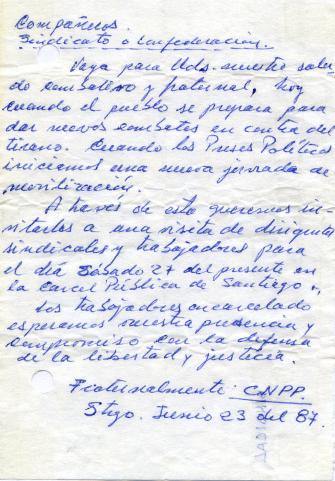 Compañeros.
Sindicato o Confederación.
Vaya para Uds. nuestro salu
do combativo y fraternal, hoy
cuando el pueblo se prepara para
dar nuevos combates en contra del
tirano. Cuando los Presos Políticos
iniciamos una nueva jornada de
movilización.
A través de esto queremos in-
vitarlos a una visita de dirigentes
sindicales y trabajadores para
el día Sábado 27 del presente en
la Carcel Pública de Santiago.,
Los trabajadores encarcelado
esperamos vuestra presencia y
compromiso con la defensa
de la libertad y justicia.
Fraternalmente: CNPP.
Stgo. Junio 23 del 87.